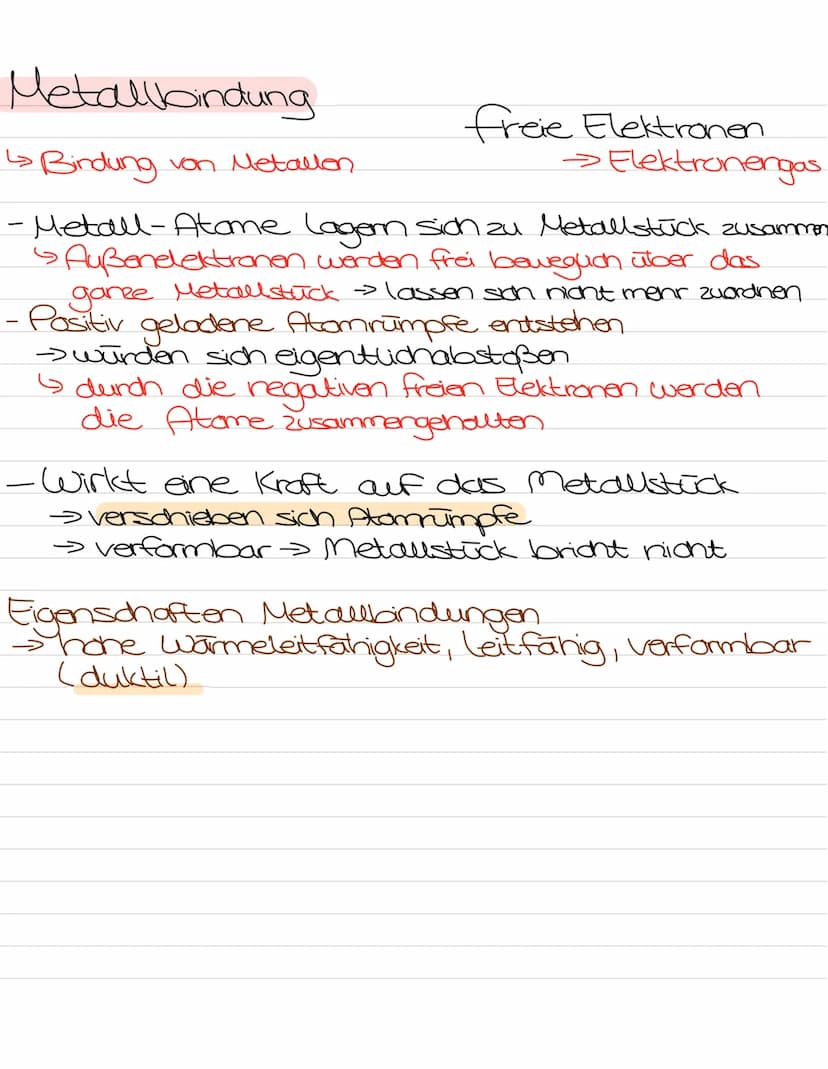 Metallbindung
freie Elektronen
↳ Bindung von Metallen
→ Elektronengas
- Metall-Atome lagern sich zu Metallstück zusammen
↳ Außenelektronen werden frei beweglich über das
ganze Metallstück → lassen sich nicht mehr zuordnen
- Positiv geladene Atomrümpfe entstehen
→ würden sich eigentlich abstoßen
↳ durch die negativen freien Elektronen werden
die Atome zusammengehalten
- Wirkt eine Kraft auf das Metallstück
→ verschieben sich Atomrümpfe
→ verformbar → Metallstück bricht nicht
Eigenschaften Metallbindungen
→ hohe Wärmeleitfähigkeit, leitfähig, verformbar
(duktil)